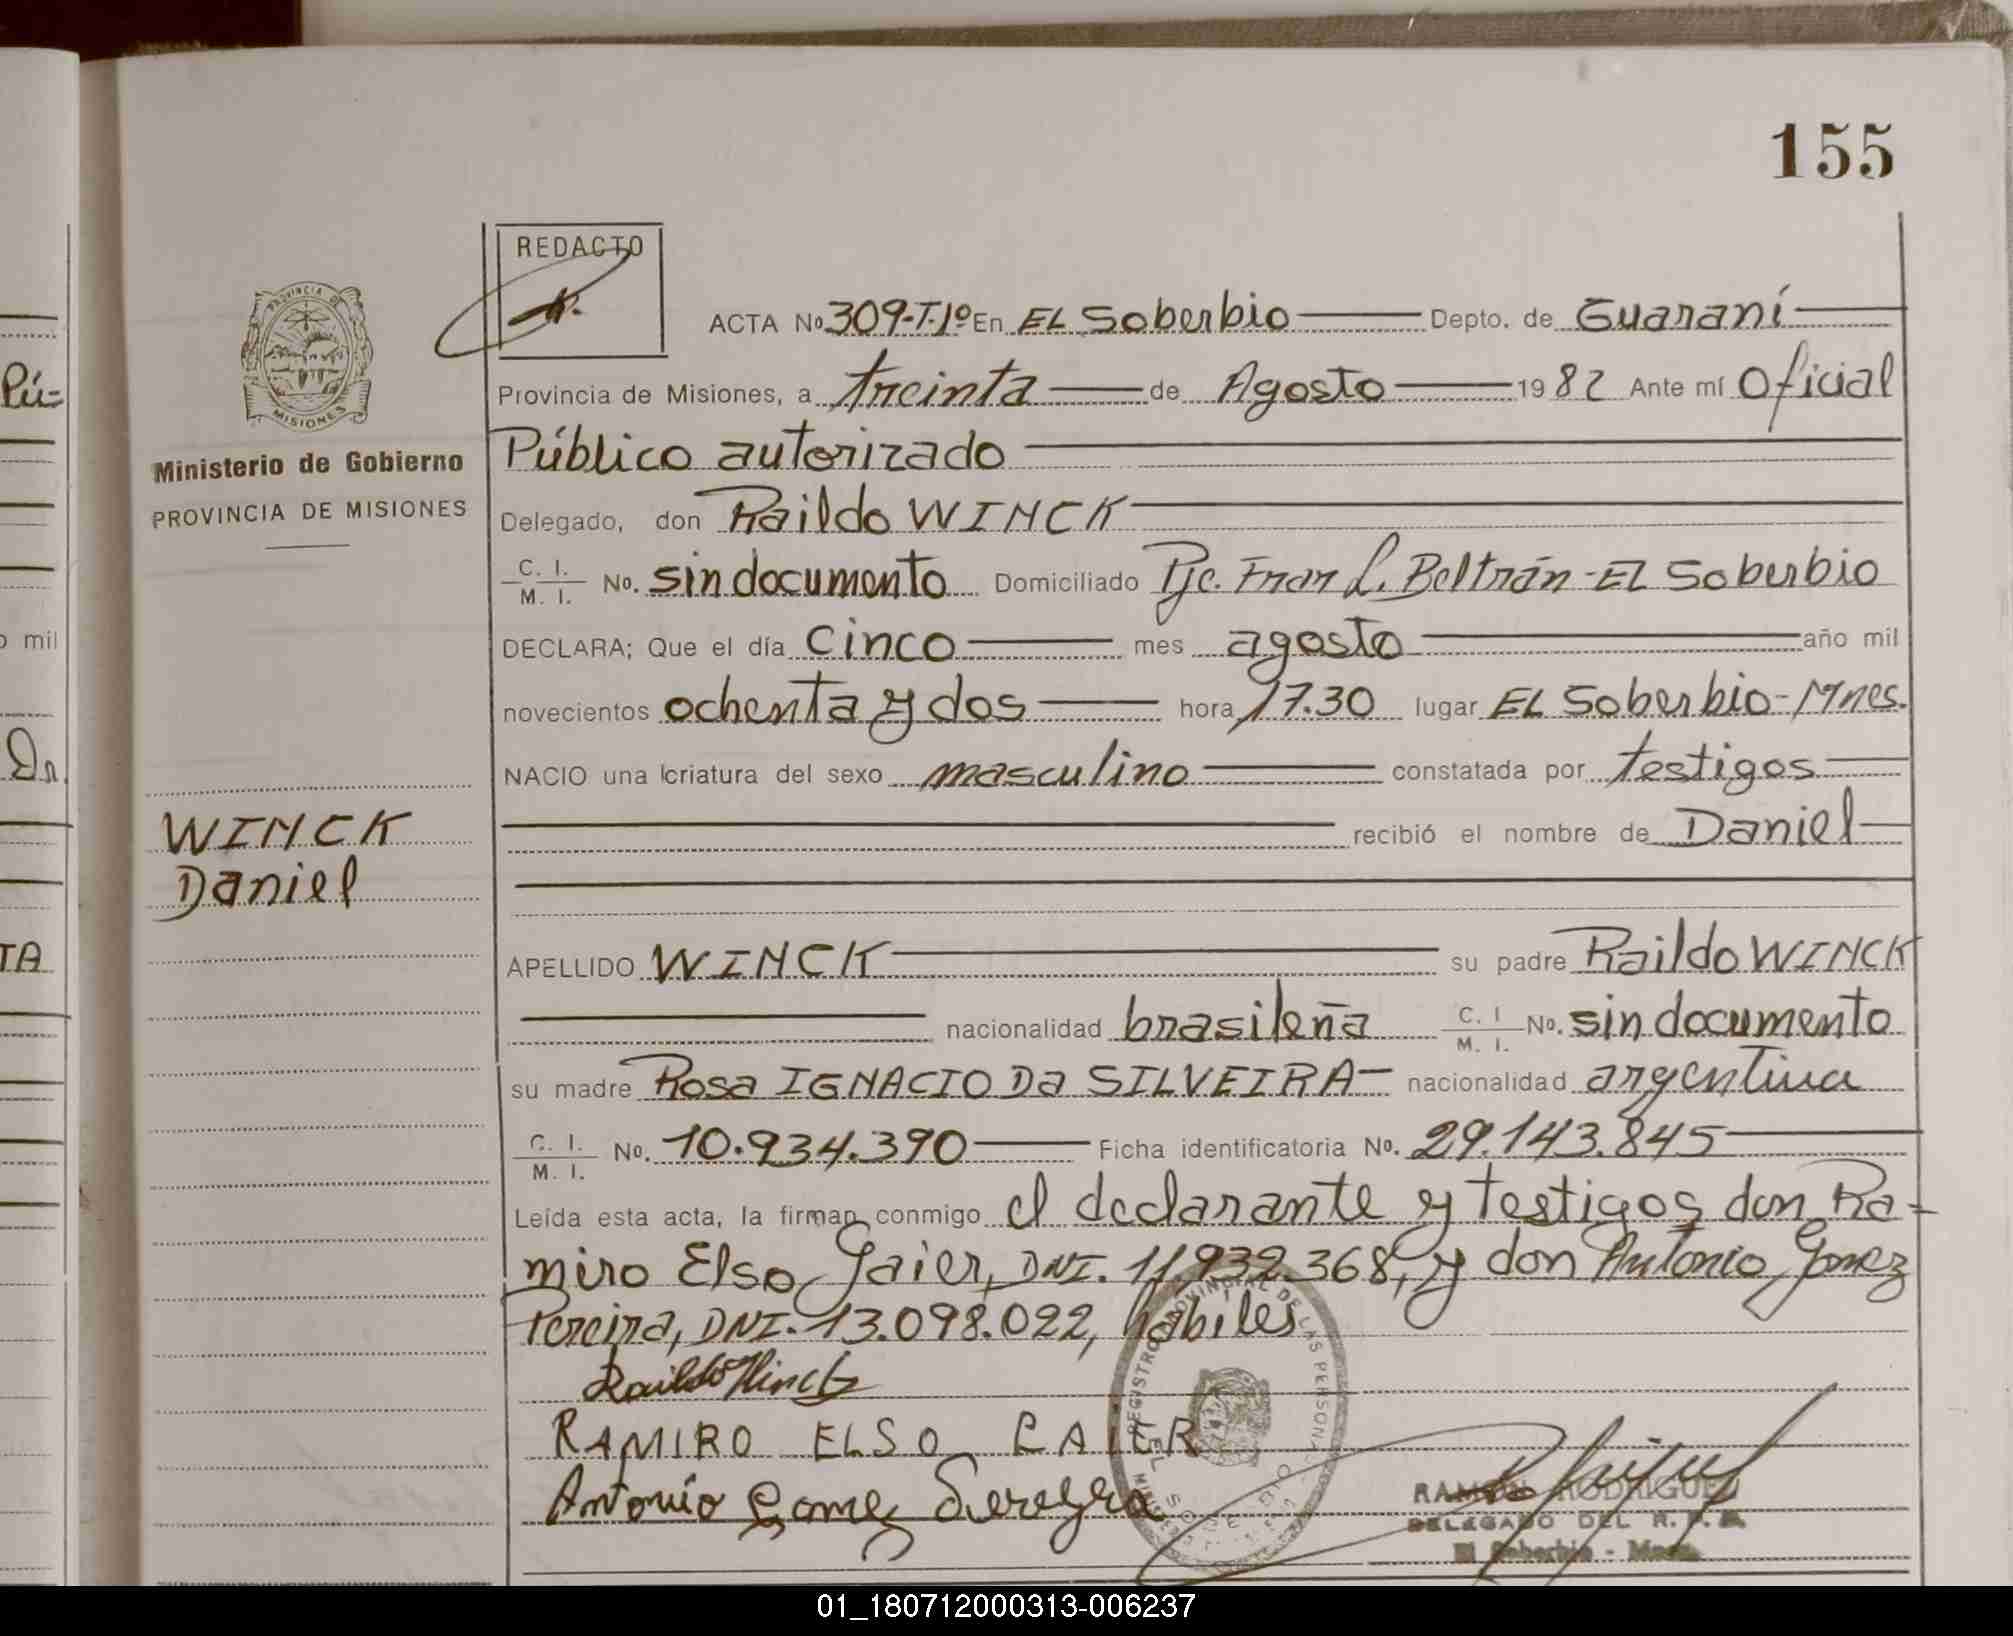 155
REDACTO
PROVINCIA DE
MISIONES
ACTA No. 309-T.1º En EL Soberbio Depto. de Guaraní
Provincia de Misiones, a treinta de Agosto 1982 Ante mí Oficial
Público autorizado
Ministerio de Gobierno
PROVINCIA DE MISIONES
Delegado, don Raildo WINCK
C. I. / M. I. No. sin documento Domiciliado Pje. Fran L. Beltrán - EL Soberbio
DECLARA; Que el día cinco mes agosto año mil
novecientos ochenta y dos hora 17.30 lugar EL Soberbio - Mnes.
NACIO una criatura del sexo masculino constatada por testigos
WINCK
Daniel
recibió el nombre de Daniel
APELLIDO WINCK su padre Raildo WINCK
nacionalidad brasileña C. I / M. I. No. sin documento
su madre Rosa IGNACIO Da SILVEIRA nacionalidad argentina
C. I. / M. I. No. 10.934.390 Ficha identificatoria No. 29.143.845
Leída esta acta, la firman conmigo el declarante y testigos don Ra-
miro Elso Gaier, DNI. 11.932.368, y don Antonio Gomez
Pereira, DNI. 13.098.022, hábiles
Raildo Winck
RAMIRO ELSO GAIER
Antonio Gomez Pereyra
REGISTRO PROVINCIAL DE LAS PERSONAS
EL SOBERBIO
RAMON RODRIGUEZ
DELEGADO DEL R. P. P.
El Soberbio - Mnes.
Pú-
o mil
Dn.
TA
01_180712000313-006237